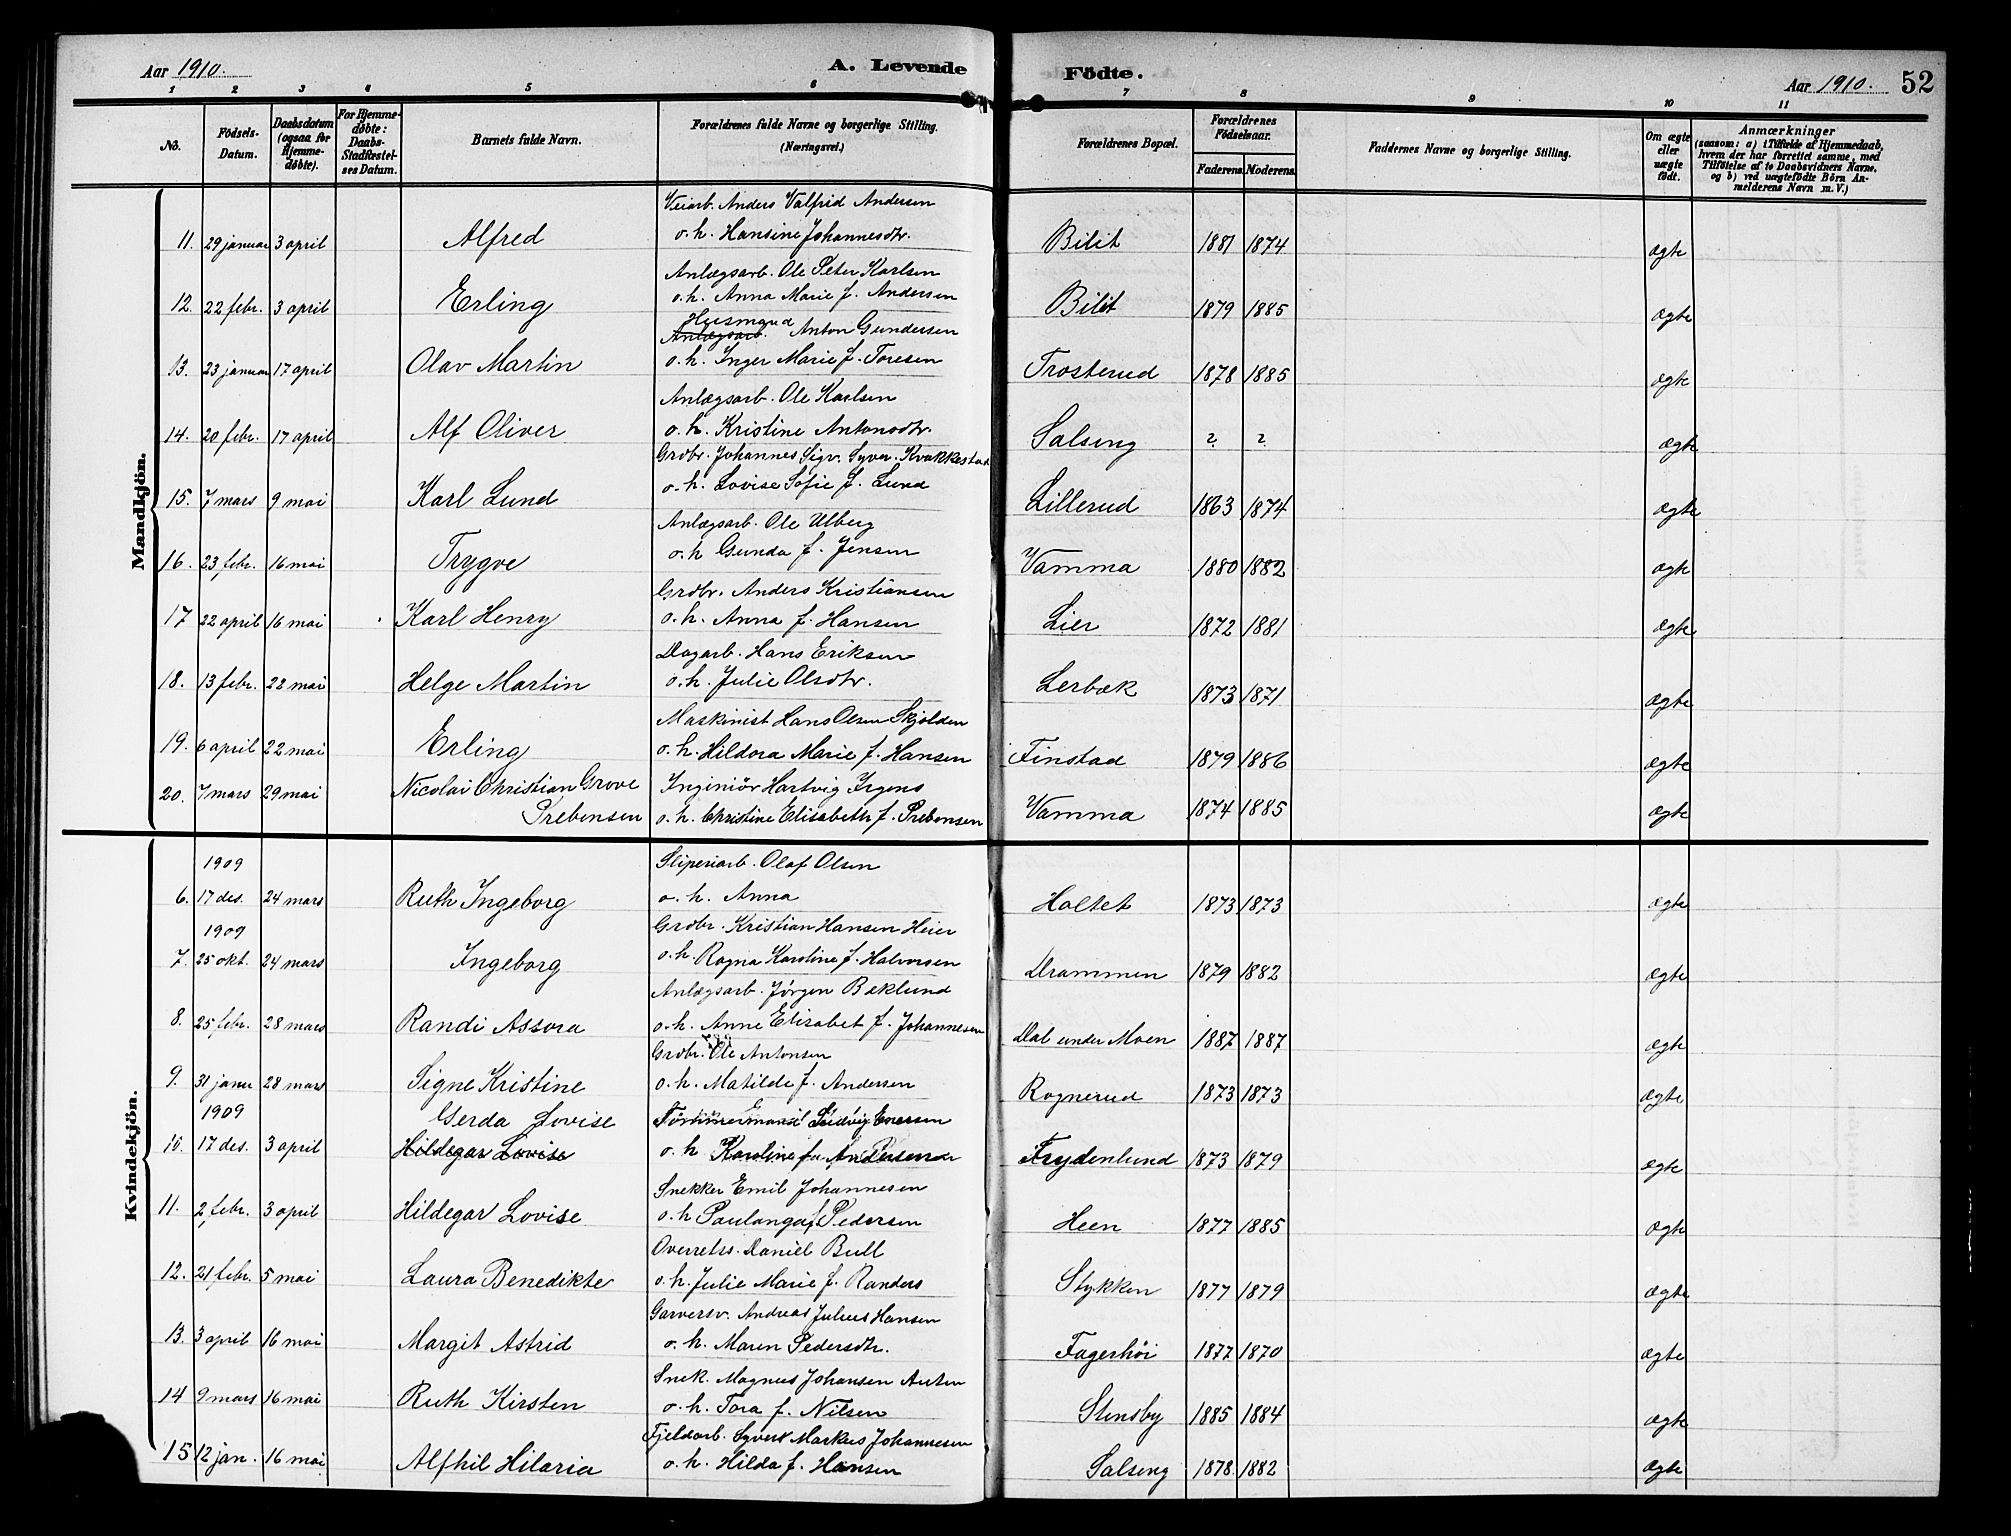 Aar 1910. A. Levende Födte. Aar 1910. 52
1 2 3 4 5 6 7 8 9 10 11
No. Födsels-Datum. Daabsdatum (ogsaa for Hjemme-döbte). For Hjemme-döbte: Daabs-Stadfæstel-ses Datum. Barnets fulde Navn. Forældrenes fulde Navne og borgerlige Stilling. (Næringsvei.) Forældrenes Bopæl. Forældrenes Födselsaar. Faderens Moderens. Faddernes Navne og borgerlige Stilling. Om ægte eller uægte födt. Anmærkninger (saasom: a) i Tilfælde af Hjemmedaab, hvem der har forrettet samme, med Tilföielse af to Daabsvidners Navne, og b) ved uægtefödte Börn An-melderens Navn m. V.)
Mandkjön.
Veiarb. Anders Valfrid Andersen
11. 29 januar 3 april Alfred o. h. Hansine Johannesdtr. Bilit 1881 1874 ægte
Anlægsarb. Ole Peter Karlsen
12. 22 febr. 3 april Erling o. h. Anna Marie f. Andersen Bilit 1879 1885 ægte
Husmand
Anlægsarb. Anton Gundersen
13. 23 januar 17 april Olav Martin o. h. Inger Marie f. Toresen Trosterud 1878 1885 ægte
Anlægsarb. Ole Karlsen
14. 20 febr. 17 april Alf Oliver o. h. Kristine Antonsdtr. Salseng ? ? ægte
Grdbr. Johannes Sigv. Syver. Kvakkestad
15. 7 mars 9 mai Karl Lund o. h. Lovise Sofie f. Lund Lillerud 1863 1874 ægte
Anlægsarb. Ole Ulberg
16. 23 febr. 16 mai Trygve o. h Gunda f. Jensen Vamma 1880 1882 ægte
Grdbr. Anders Kristiansen
17 22 april 16 mai Karl Henry o. h. Anna f. Hansen Lier 1872 1881 ægte
Dagarb. Hans Eriksen
18. 13 febr. 22 mai Helge Martin o. h. Julie Olsdtr. Lerbæk 1873 1871 ægte
Maskinist Hans Olsen Skjolden
19. 6 april 22 mai Erling o. h. Hildora Marie f. Hansen Finstad 1879 1886 ægte
20. 7 mars 29 mai Nicolai Christian Grove Ingeniör Hartvig Irgens
Prebensen o. h. Christine Elisabeth f. Prebensen Vamma 1874 1885 ægte
Kvindekjön.
1909 Sliperiarb. Olaf Olsen
6. 17 des. 24 mars Ruth Ingeborg o. h. Anna Holtet 1873 1873 ægte
1909 Grdbr. Kristian Hansen Heier
7. 25 okt. 24 mars Ingeborg o. h. Ragna Karoline f. Halvorsen Drammen 1879 1882 ægte
Anlægsarb. Jörgen Beklund
8. 25 febr. 28 mars Randi Assora o. h. Anne Elisabet f. Johannesen Dal under Moen 1887 1887 ægte
Grdbr. Ole Antonsen
9. 31 janu 28 mars Signe Kristine o. h. Matilde f. Andersen Rognerud 1873 1873 ægte
1909 Gerda Lovise Tömmermand Ludvig Enersen
10. 17 des. 3 april Hildegar Lovise o. h Karoline f. Andersen Frydenlund 1873 1879 ægte
Snekker Emil Johannesen
11. 2 febr. 3 april Hildegar Lovise o. h Paulanga f. Pedersen Heen 1877 1885 ægte
Overretss. Daniel Bull
12. 21 febr. 5 mai Laura Benedikte o. h. Julie Marie f. Randers Stykken 1877 1879 ægte
Garversv. Andreas Julius Hansen
13. 3 april 16 mai Margit Astrid o. h. Maren Pedersdtr. Fagerhöi 1877 1870 ægte
Snek. Magnus Johansen Auten
14 9 mars 16 mai Ruth Kirsten o. h. Tora f. Nilsen Stensby 1885 1884 ægte
Fjeldarb. Syvert Markus Johannesen
15 12 jan. 16 mai Alfhil Hilaria o. h. Hilda f. Hansen Salseng 1878. 1882 ægte